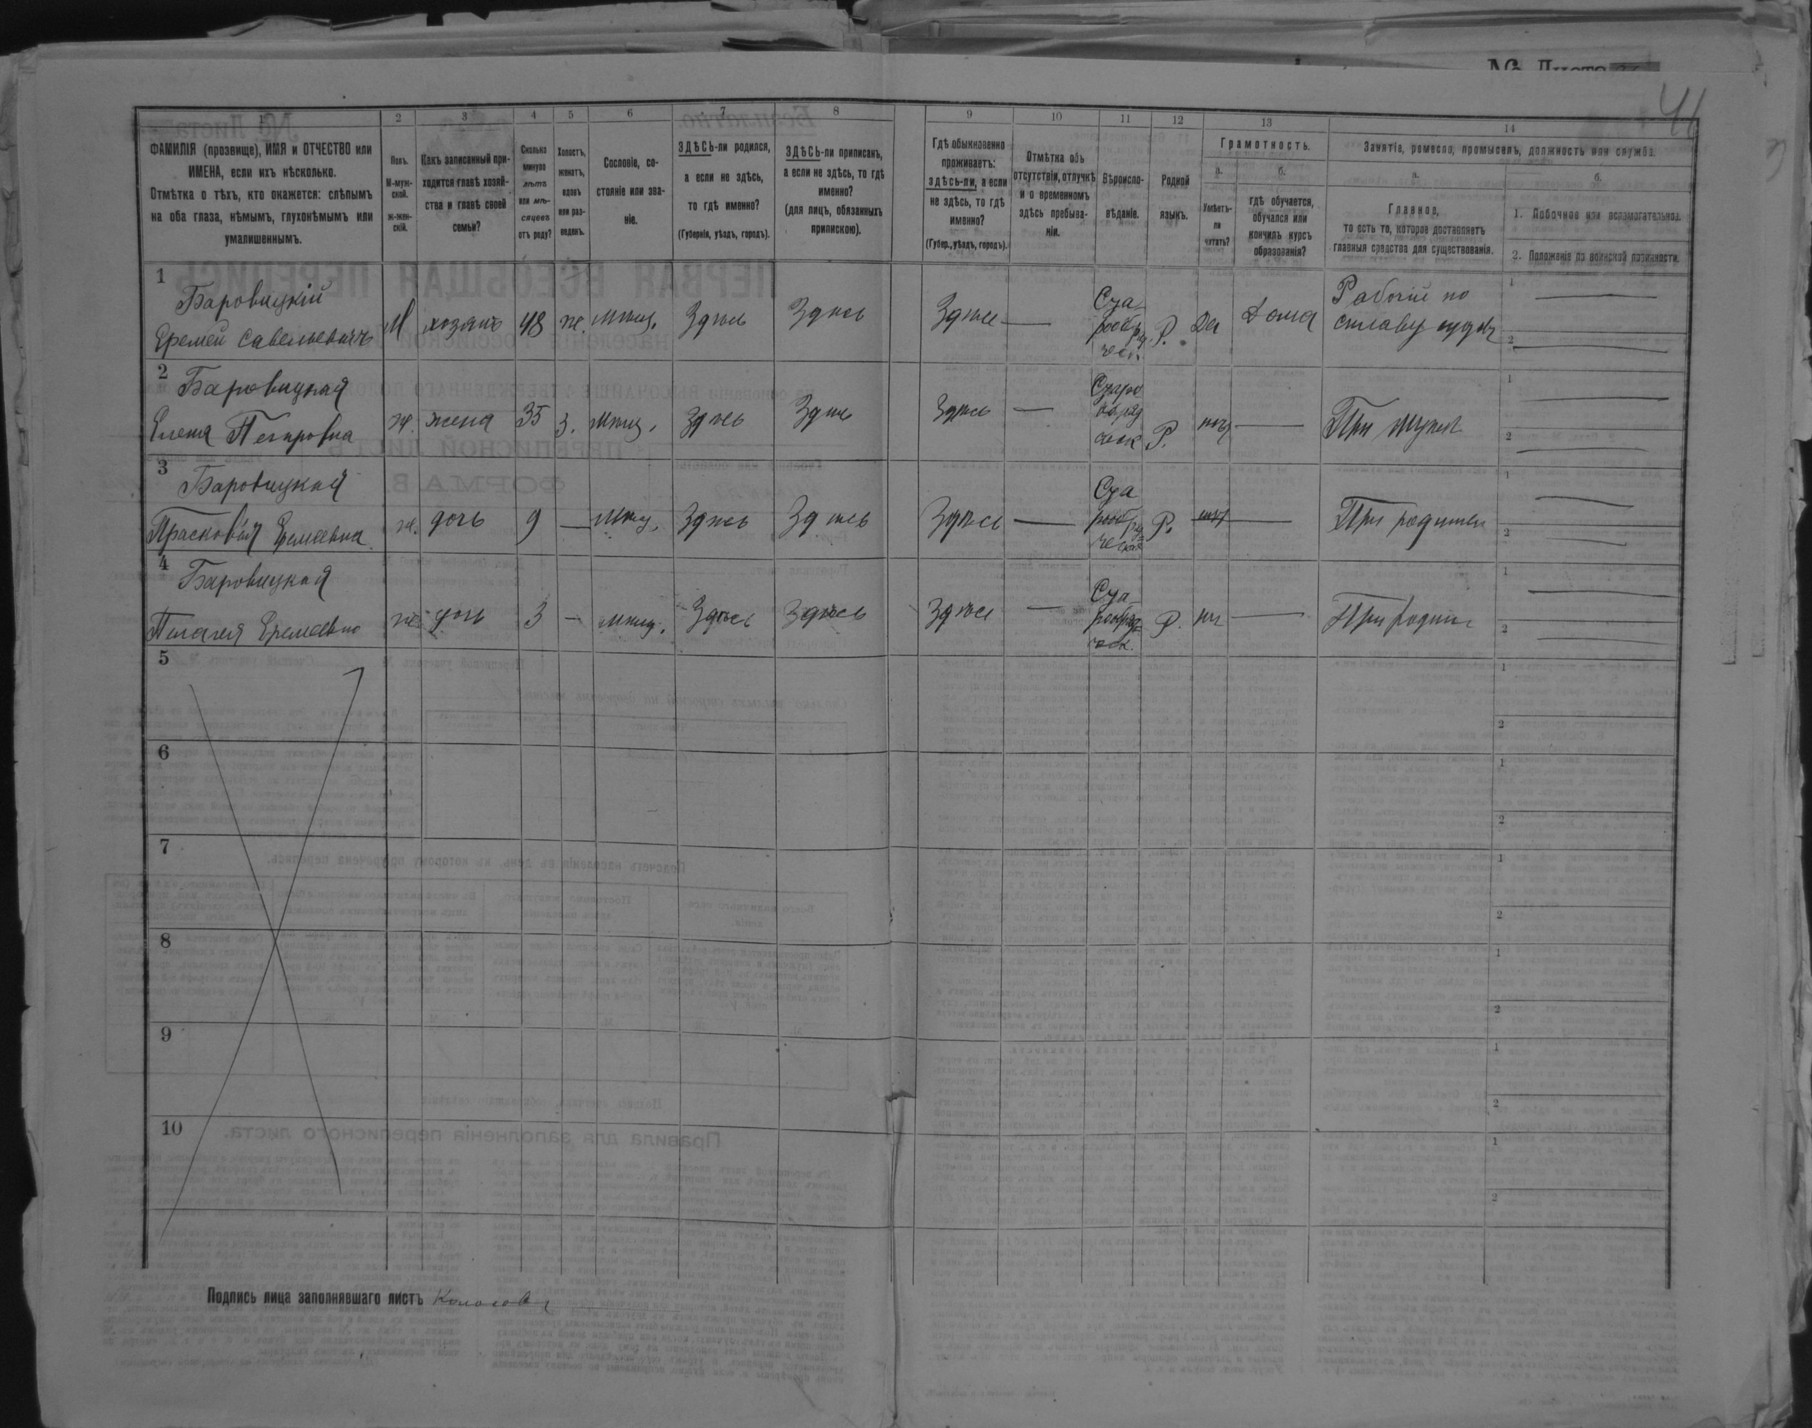 № Листа
41
1 2 3 4 5 6 7 8 9 10 11 12 13 14
ФАМИЛІЯ (прозвище), ИМЯ и ОТЧЕСТВО или
ИМЕНА, если ихъ нѣсколько.
Отмѣтка о тѣхъ, кто окажется: слѣпымъ
на оба глаза, нѣмымъ, глухонѣмымъ или
умалишеннымъ.
Полъ.
М-муж-
ской.
ж-жен-
скій.
Какъ записанный при-
ходится главѣ хозяй-
ства и главѣ своей
семьи?
Сколько
минуло
лѣтъ
или мѣ-
сяцевъ
отъ роду?
Холостъ,
женатъ,
вдовъ
или раз-
веденъ.
Сословіе, со-
стояніе или зва-
ніе.
ЗДѢСЬ-ли родился,
а если не здѣсь,
то гдѣ именно?
(Губернія, уѣздъ, городъ).
ЗДѢСЬ-ли приписанъ,
а если не здѣсь, то гдѣ
именно?
(для лицъ, обязанныхъ
припискою).
Гдѣ обыкновенно
проживаетъ:
здѣсь-ли, а если
не здѣсь, то гдѣ
именно?
(Губер., уѣздъ, городъ).
Отмѣтка объ
отсутствіи, отлучкѣ
и о временномъ
здѣсь пребыва-
ніи.
Вѣроиспо-
вѣданіе.
Родной
языкъ.
Грамотность.
а.
Умѣетъ-
ли
читать?
б.
гдѣ обучается,
обучался или
кончилъ курсъ
образованія?
Занятіе, ремесло, промыселъ, должность или служба.
а.
Главное,
то есть то, которое доставляетъ
главныя средства для существованія.
б.
1. Побочное или вспомогательное.
2. Положеніе по воинской повинности.
1 Баровицкій
Еремей Савельевичъ М хозяинъ 48 ж. мѣщ. Здѣсь Здѣсь Здѣсь — Ста
рообряд
чес. Р. Да Дома Рабочій по
сплаву судовъ 1 — 2 —
2 Баровицкая
Елена Петровна ж. жена 35 з. мѣщ. Здѣсь Здѣсь Здѣсь — Старо
обряд
ческ Р. нѣт — При мужѣ 1 — 2 —
3 Баровицкая
Прасковья Еремеевна ж. дочь 9 — мѣщ. Здѣсь Здѣсь Здѣсь — Ста
рообряд
ческая Р. нѣт — При родител 1 — 2 —
4 Баровицкая
Пелагея Еремеевна ж. дочь 3 — мѣщ. Здѣсь Здѣсь Здѣсь — Ста
рообряд
ческ. Р. нѣт — При родит 1 — 2 —
5 1 2
6 1 2
7 1 2
8 1 2
9 1 2
10 1 2
Подпись лица заполнявшаго листъ Колосовъ